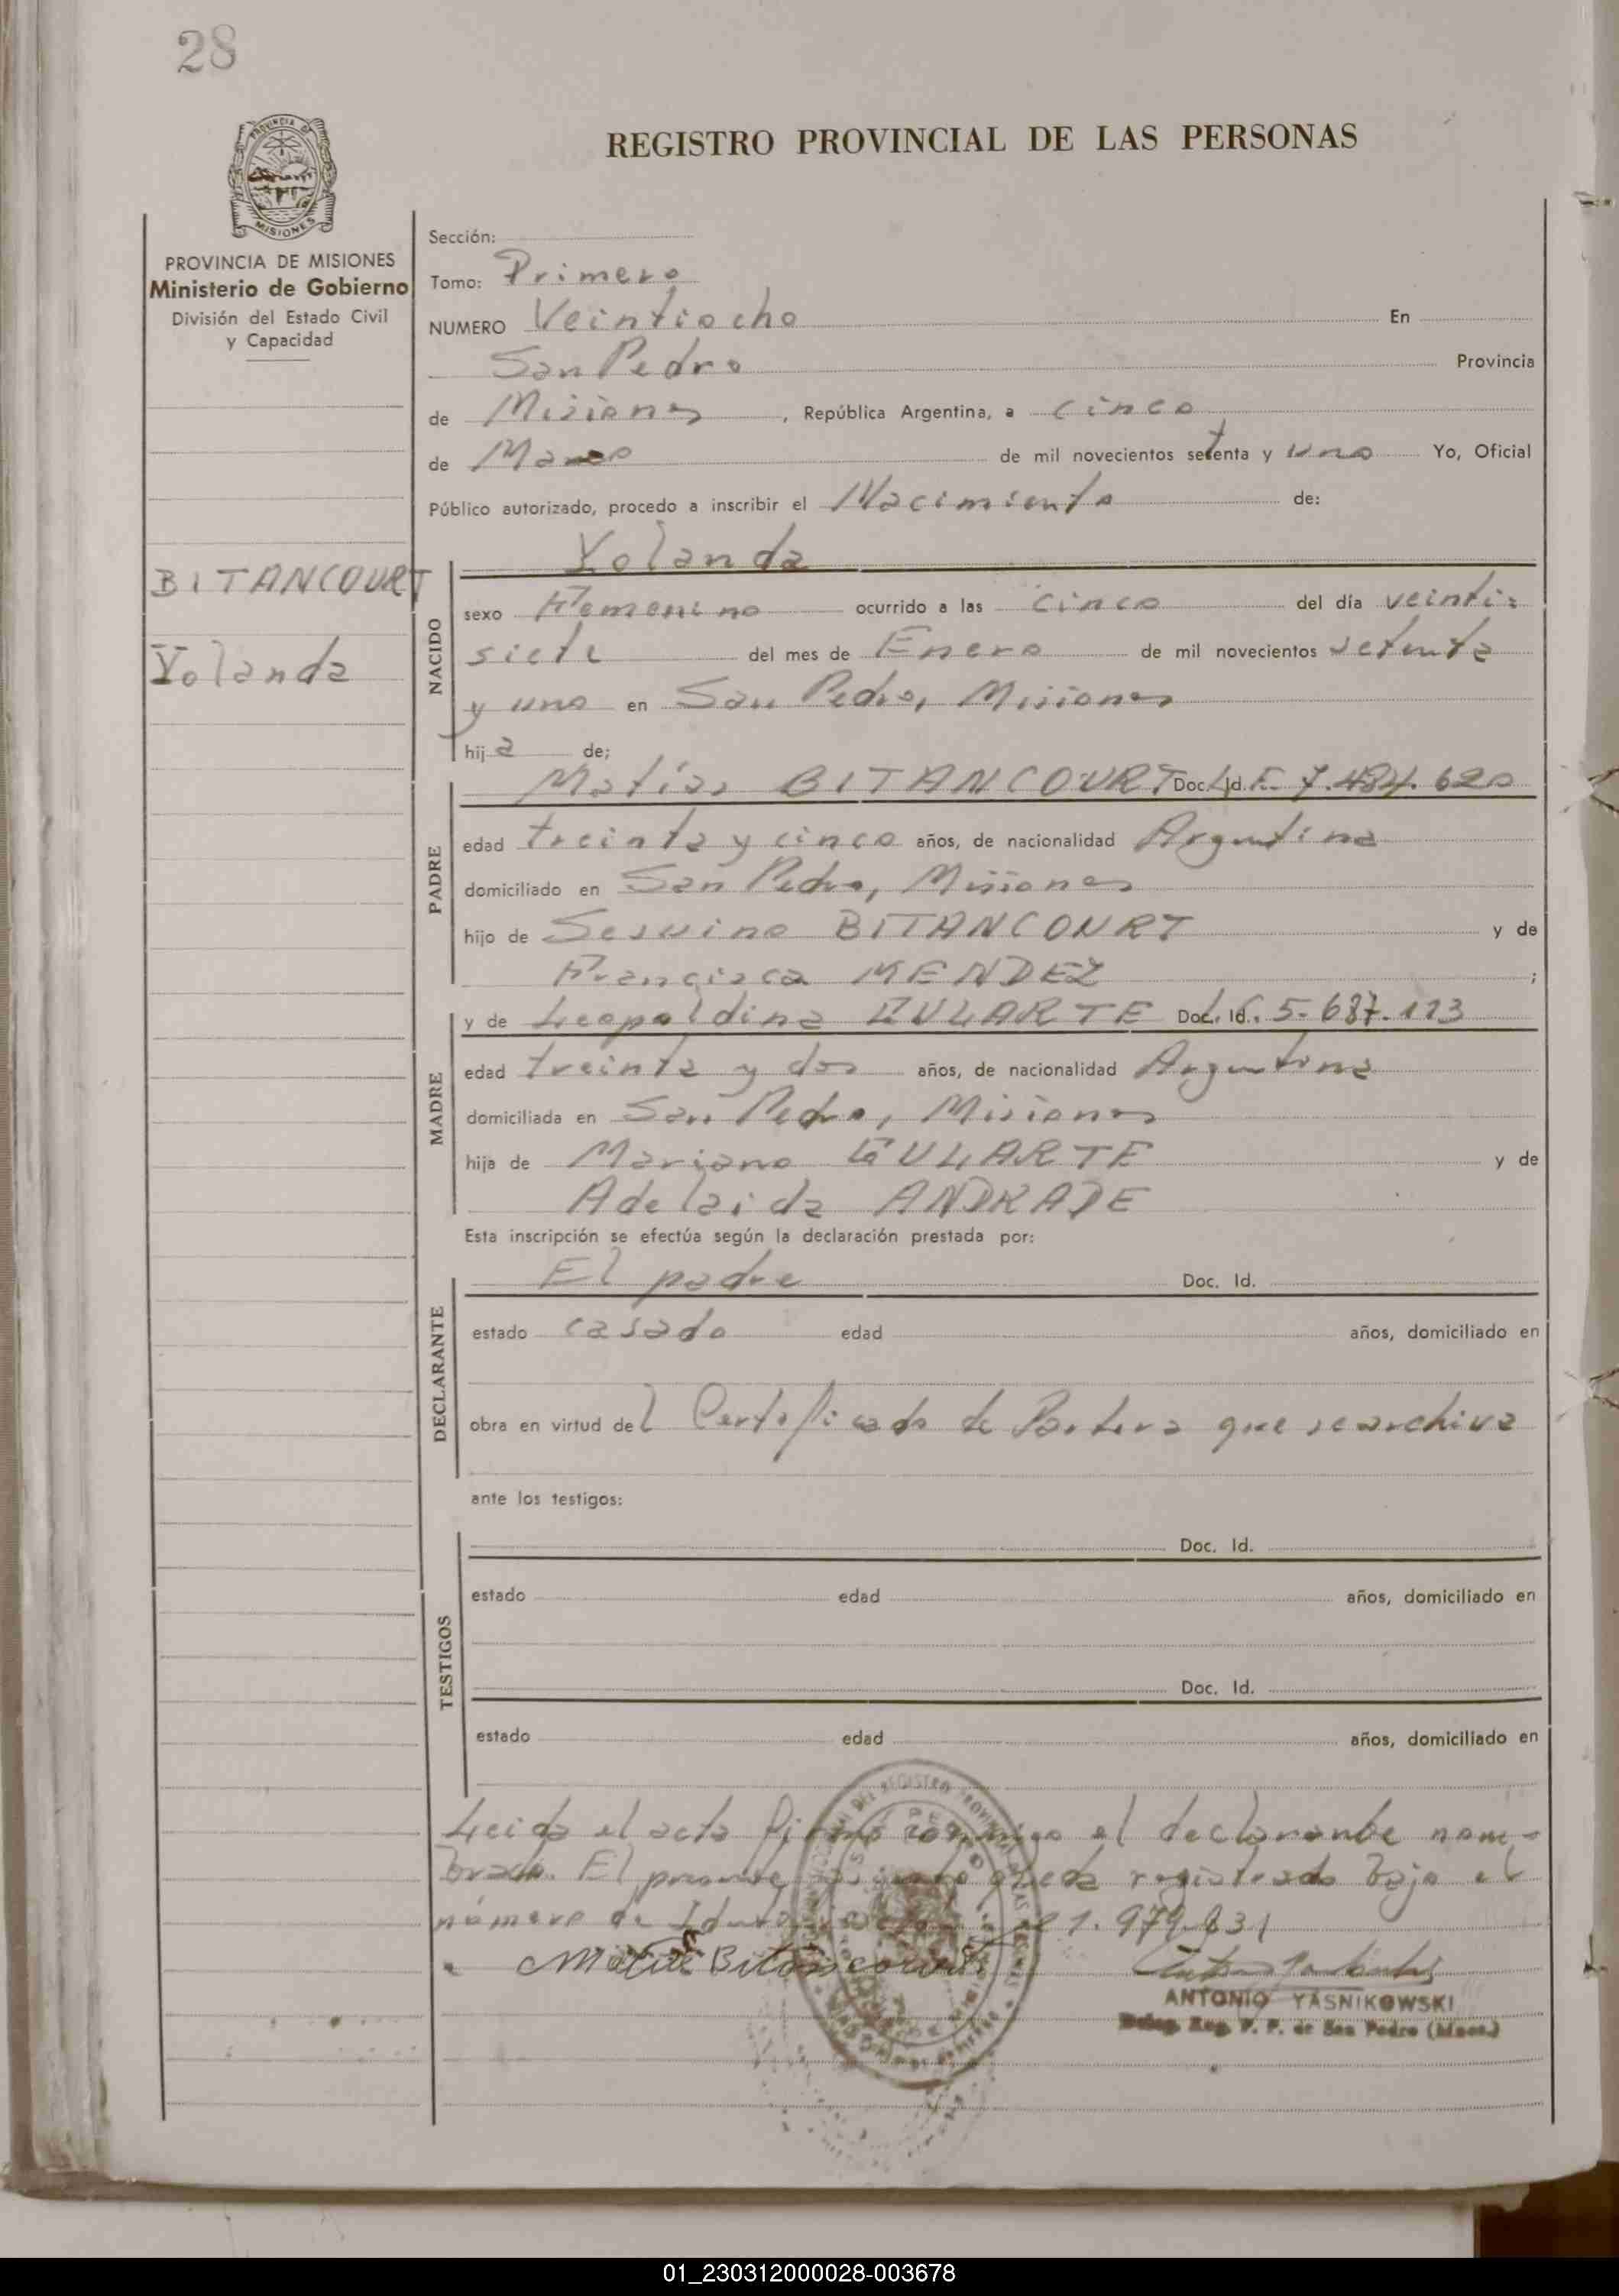 28
REGISTRO PROVINCIAL DE LAS PERSONAS
PROVINCIA DE MISIONES
Ministerio de Gobierno
División del Estado Civil
y Capacidad
BITANCOURT
Yolanda
Sección:
Tomo: Primero
NUMERO Veintiocho En
San Pedro Provincia
de Misiones, República Argentina, a cinco
de Marzo de mil novecientos setenta y uno Yo, Oficial
Público autorizado, procedo a inscribir el Nacimiento de:
Yolanda
NACIDO
sexo Femenino ocurrido a las cinco del día veinti-
siete del mes de Enero de mil novecientos setenta
y uno en San Pedro, Misiones
hija de;
PADRE
Matías BITANCOURT Doc. Id. 7.484.620
edad treinta y cinco años, de nacionalidad Argentina
domiciliado en San Pedro, Misiones
hijo de BITANCOURT y de
Francisca MENDEZ ;
MADRE
y de Leopoldina Doc. Id. 5.687.113
edad treinta y dos años, de nacionalidad Argentina
domiciliada en San Pedro, Misiones
hija de Mariano y de
Adelaida ANDRADE
Esta inscripción se efectúa según la declaración prestada por:
DECLARANTE
El padre Doc. Id.
estado casado edad años, domiciliado en
obra en virtud del Certificado de Partera que se archiva
ante los testigos:
TESTIGOS
Doc. Id.
estado edad años, domiciliado en
Doc. Id.
estado edad años, domiciliado en
Leida el acta el declarante nom-
brado. El queda registrado bajo el
número de
Bitancourt
ANTONIO YASNIKOWSKI
Deleg. Reg. P. P. de San Pedro (Mnes.)
01_230312000028-003678